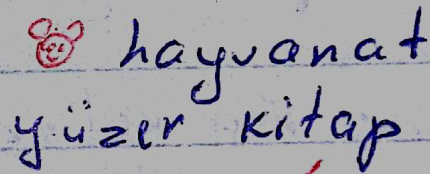 hayvanat
yüzer kitap